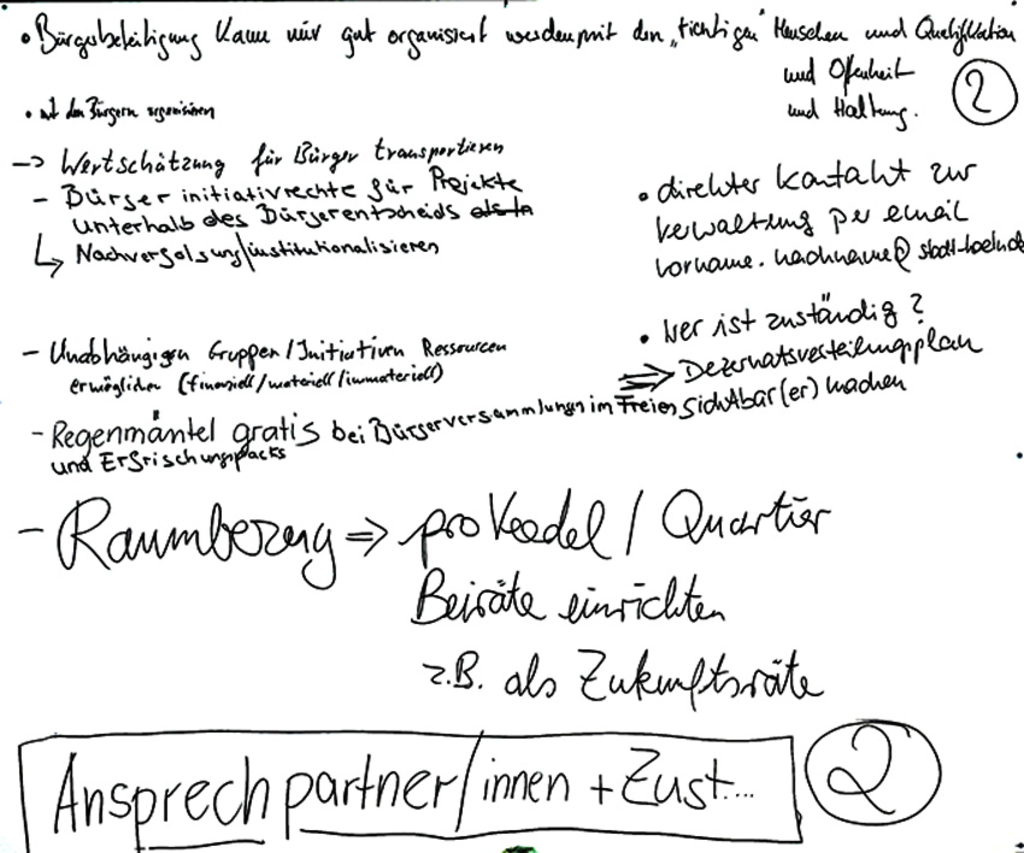 • Bürgerbeteiligung kann nur gut organisiert werden mit den „richtigen" Menschen und Qualifikation
und Offenheit
und Haltung.
2
• mit den Bürgern organisieren
-> Wertschätzung für Bürger transportieren
- Bürgerinitiativrechte für Projekte
unterhalb des Bürgerentscheids
↳ Nachverfolgung/institutionalisieren
• direkter Kontakt zur
Verwaltung per email
vorname.nachname@stadt-koeln.de
• Wer ist zuständig?
=> Dezernatsverteilungsplan
sichtbar(er) machen
- Unabhängigen Gruppen/Initiativen Ressourcen
ermöglichen (finanziell/materiell/immateriell)
- Regenmäntel gratis bei Bürgerversammlungen im Freien
und Erfrischungspacks
- Raumbezug => pro Veedel / Quartier
Beiräte einrichten
z.B. als Zukunftsräte
Ansprechpartner/innen + Zust...
2